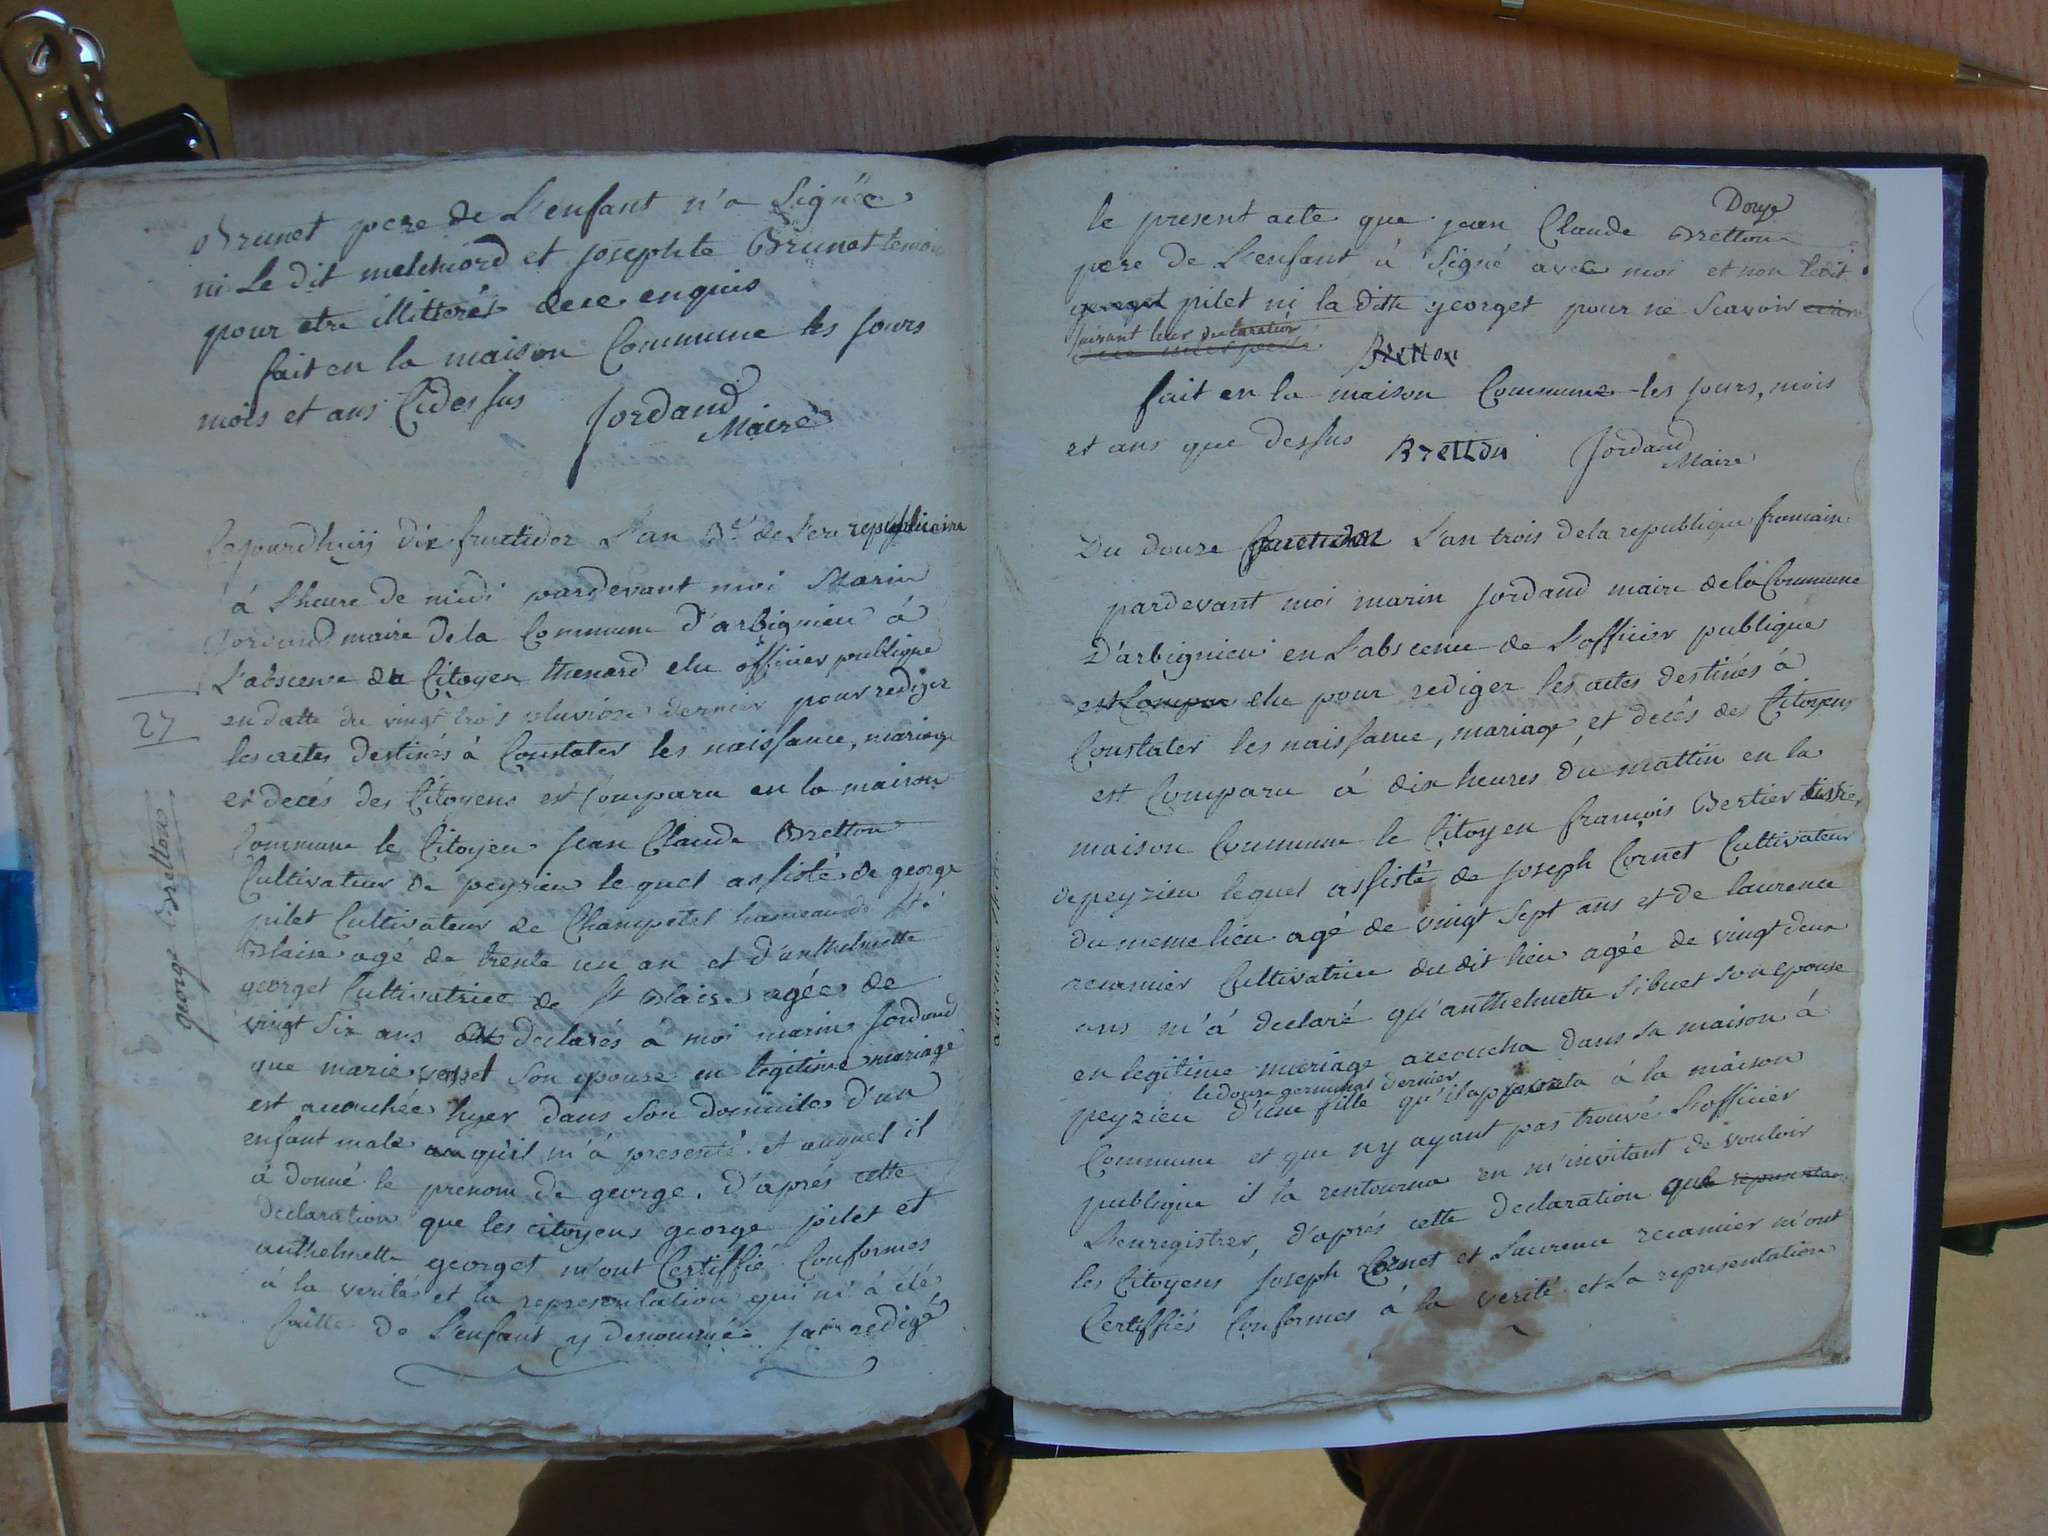 Brunet pere de L'enfant n'a Signée
ni Le dit melchiord et josephte Brunet temoin
pour etre illitterés de ce enquis
fait en la maison Commune les jours
mois et ans Cidessus Jordand
Maire
Cejourdhuij dix fructidor L'an 3.e de L'ere republicaine
á L'heure de midi pardevant moi Marin
Jordand maire de la Commune d'arbignieu á
L'absence du Citoyen thenard elu officier publique
en datte du vingt trois pluviose dernier pour rediger
27
les actes destinés á Constater les naissance, mariage
et decés des Citoyens est Comparu en la maison
Commune le Citoyen Jean Claude Bretton
george Bretton
Cultivateur de peyzieu lequel assisté de george
pilet Cultivateur de Champetel hameau de st.
Blaise agé de trente un an et d'anthelmette
georget Cultivatrice de st Blaise agée de
vingt six ans declarés á moi marin Jordand
que marie son epouse en legitime mariage
est accouchée hyer dans Son domicile d'un
enfant male qu'il m'á presenté et auquel il
á donné le prenom de george. D'aprés cette
declaration que les citoyens george pilet et
anthelmette georget m'ont Certiffié Conformes
á la verités et la representation qui m'á été
faitte de L'enfant y denommée j'ai redigé
le present acte que jean Claude Bretton Douze
pere de L'enfant á Signé avec moi et non ledit
georget pilet ni la ditte georget pour ne Scavoir
suivant leur declaration
Bretton
fait en la maison Commune les jours, mois
et ans que dessus Bretton Jordand
Maire
Du douze fructidor L'an trois de la republique francaise
pardevant moi marin Jordand maire de la Commune
D'arbignieu en L'abscence de L'officier publique
est Compar elu pour rediger les actes destinés á
Constater les naissance, mariage, et decés des Citoyens
est Comparu á dix heures du mattin en la
maison Commune le Citoyen francois Bertier
de peyzieu lequel assisté de Joseph Cornet Cultivateur
du meme lieu agé de vingt sept ans et de laurence
recamier Cultivatrice du dit lieu agée de vingt deux
ans m'á declaré qu'anthelmette Sibuet son epouse
en legitime mariage accoucha dans sa maison á
le douze germinal dernier
peyzieu d'une fille qu'il apporta á la maison
Commune et que n'y ayant pas trouvé L'officier
publique il la rentourna en m'invitant de vouloir
L'enregistrer, d'aprés cette declaration que
les Citoyens Joseph Cornet et Laurence recamier m'ont
Certiffiés Conformes á la verité et La representation